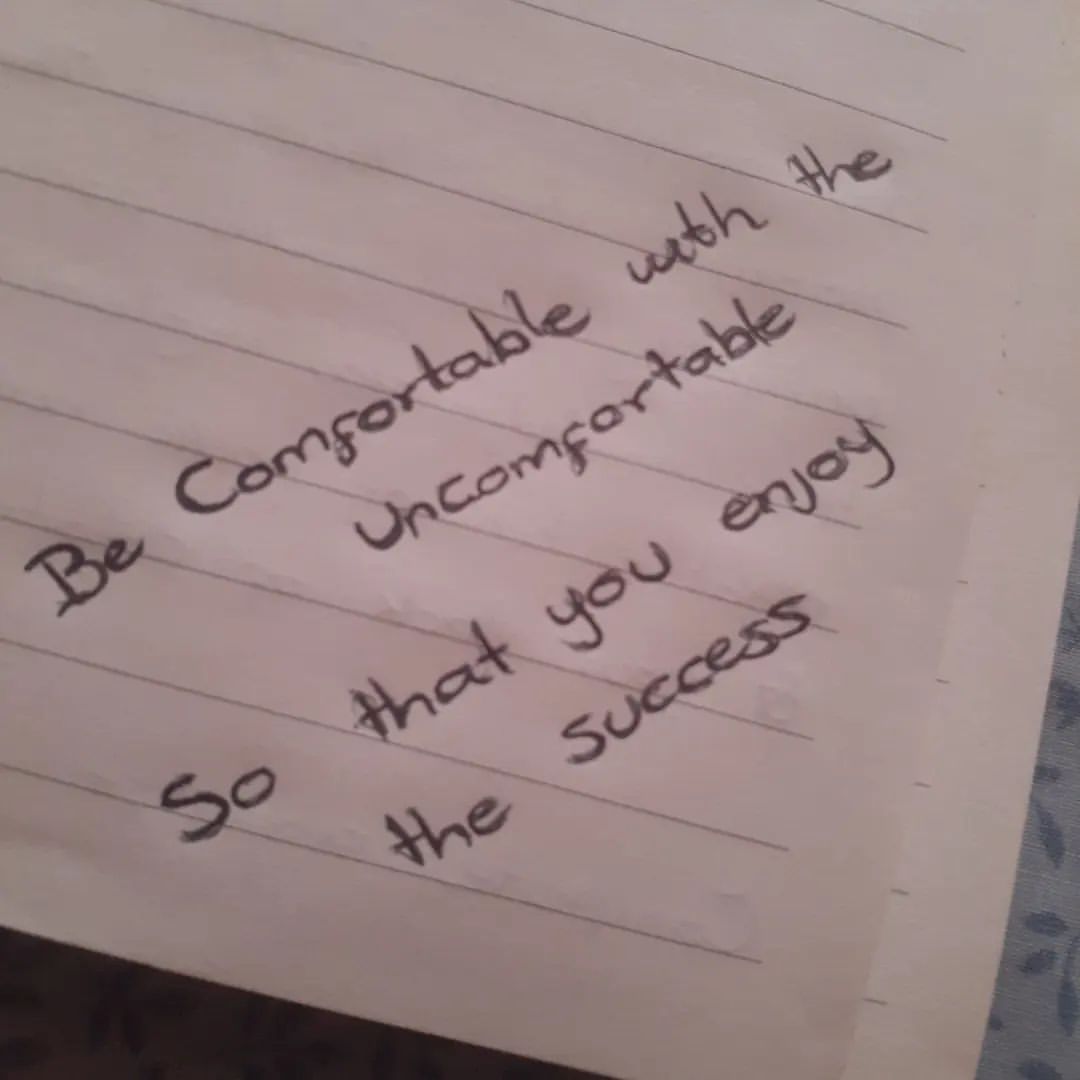 Be Comfortable with the
uncomfortable
So that you enjoy
the success